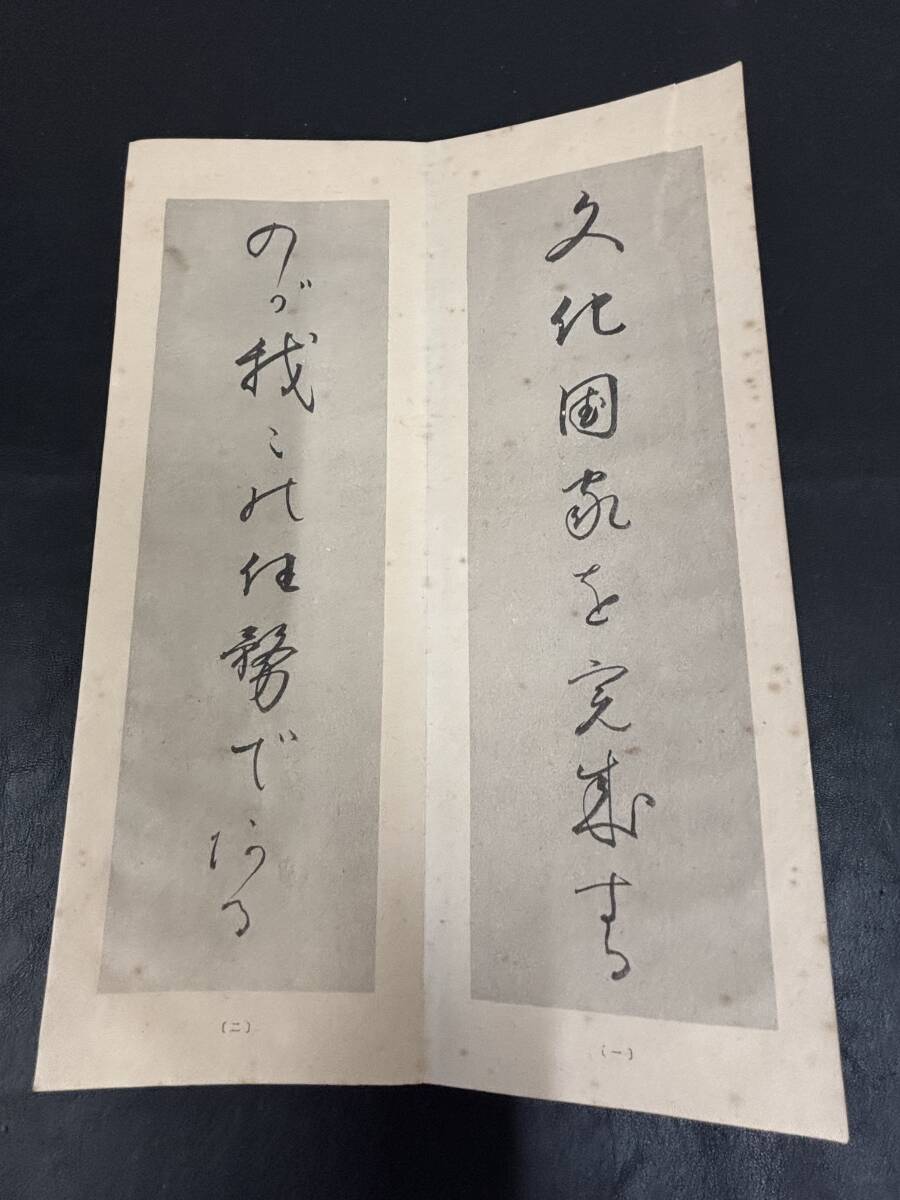 文化国家を完成する
（一）
のが我々の任務である
（二）